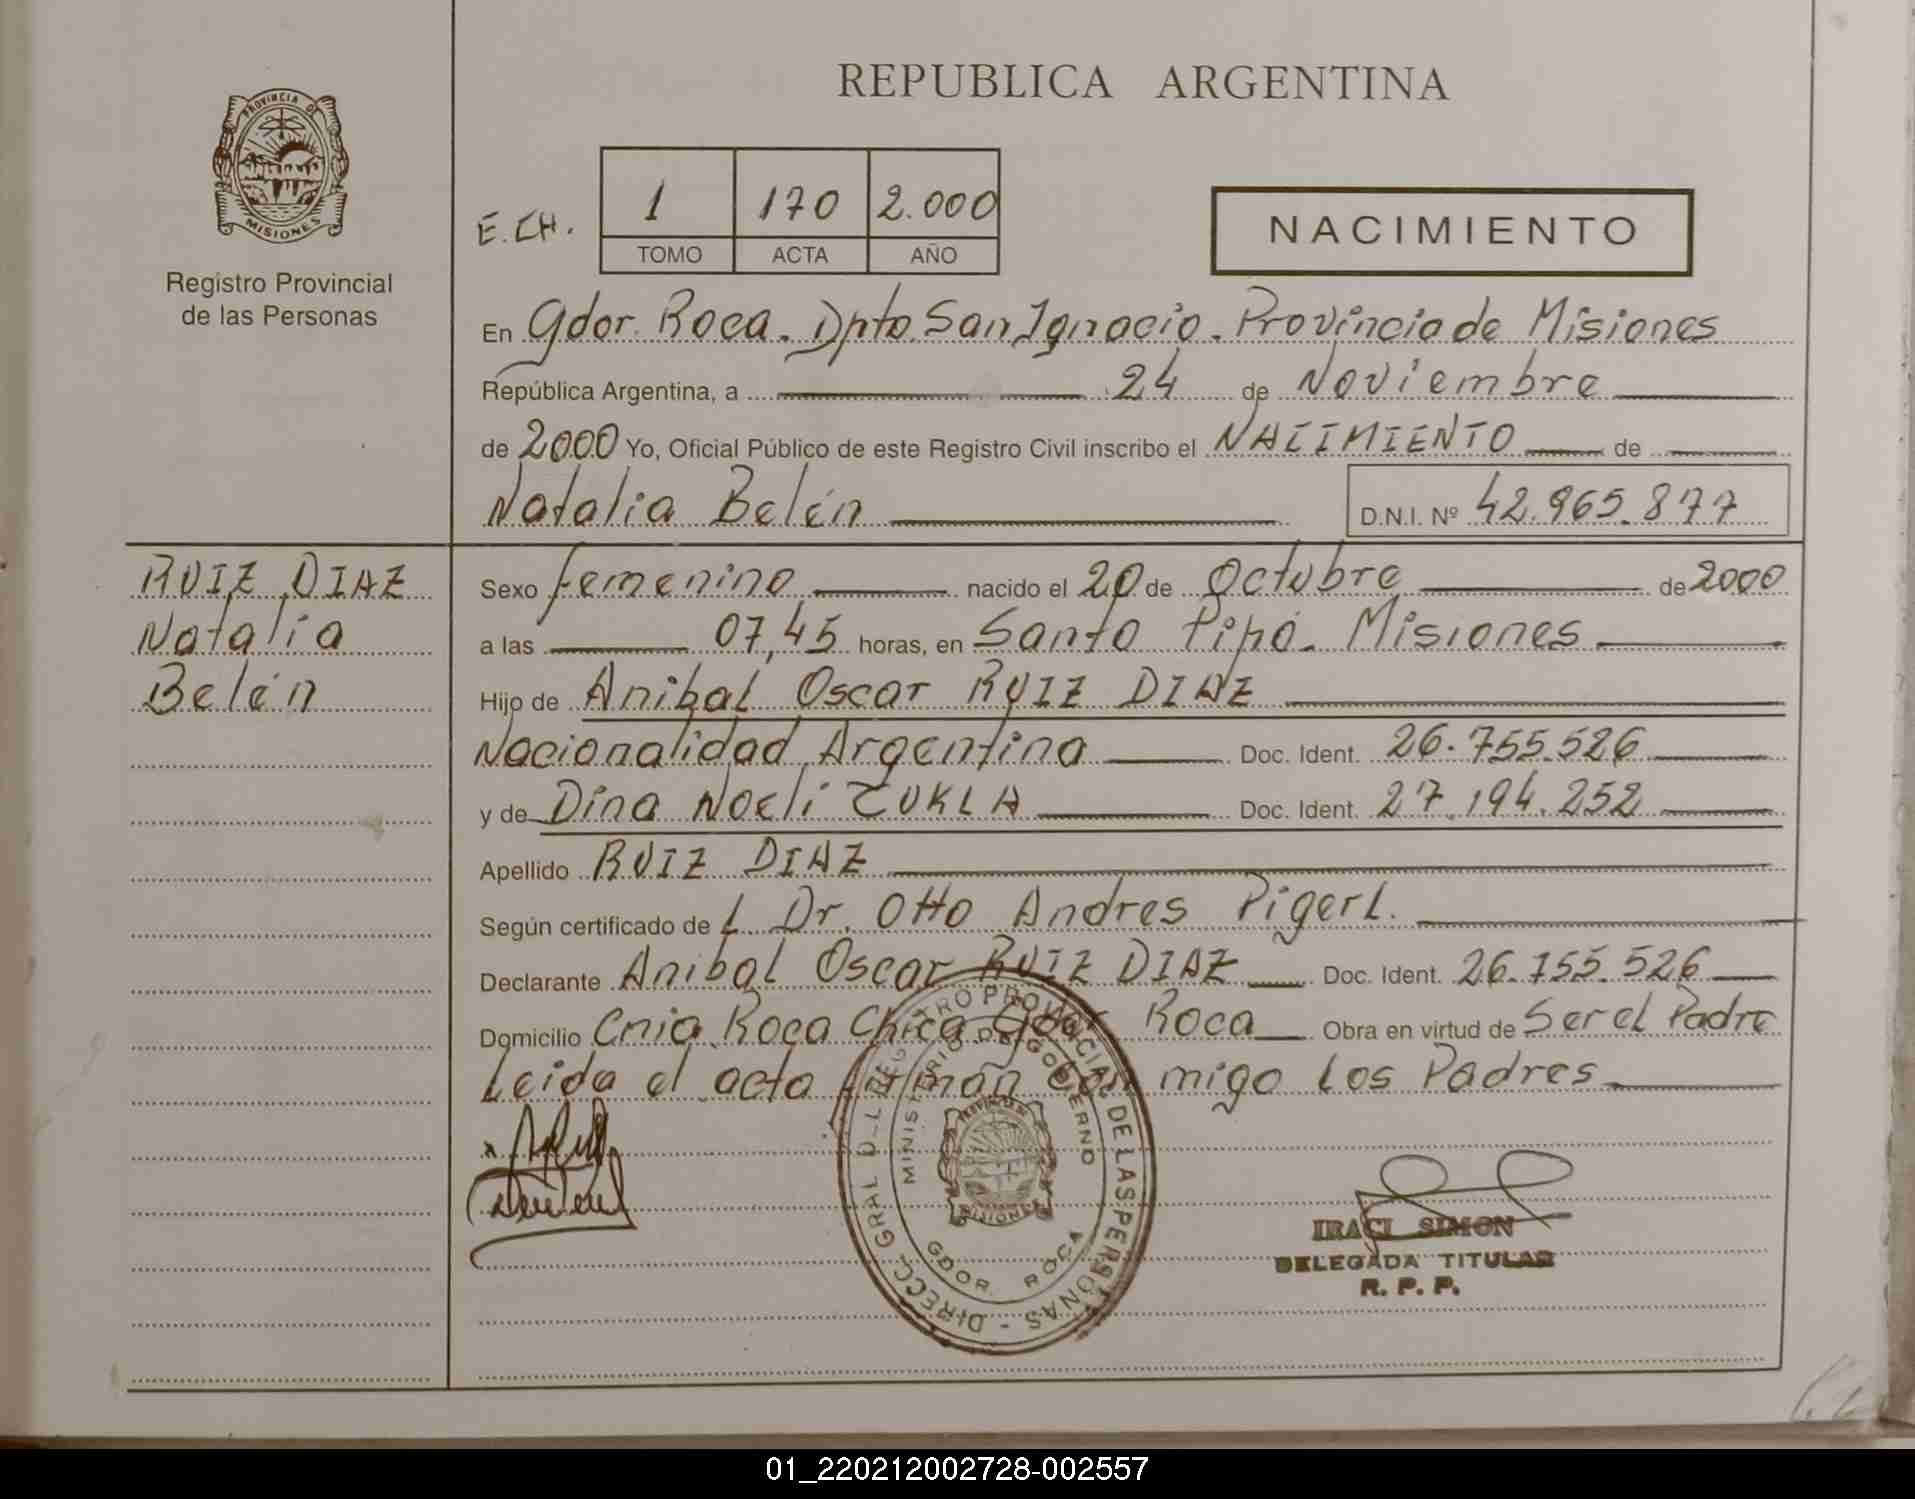 REPUBLICA ARGENTINA
PROVINCIA DE
MISIONES
Registro Provincial
de las Personas
E.CH.
1 170 2.000
TOMO ACTA AÑO
NACIMIENTO
En Gdor. Roca. Dpto. San Ignacio. Provincia de Misiones
República Argentina, a 24 de Noviembre
de 2000 Yo, Oficial Público de este Registro Civil inscribo el NACIMIENTO de
Natalia Belén D.N.I. Nº 42.965.877
RUIZ DIAZ
Natalia
Belén
Sexo femenino nacido el 20 de Octubre de 2000
a las 07,45 horas, en Santo Pipó. Misiones
Hijo de Anibal Oscar RUIZ DIAZ
Nacionalidad Argentina Doc. Ident. 26.755.526
y de Dina Noeli ZUKLA Doc. Ident. 27.194.252
Apellido RUIZ DIAZ
Según certificado de L Dr. Otto Andres Pigerl.
Declarante Anibal Oscar RUIZ DIAZ Doc. Ident. 26.755.526
Domicilio Cnia. Roca Chica Gdor Roca Obra en virtud de Ser el Padre
Leida el acta firman con migo los Padres
DIRECC. GRAL DEL REGISTRO PROVINCIAL DE LAS PERSONAS -
MINISTERIO DE GOBIERNO
MISIONES
GDOR. ROCA
IRACI SIMON
DELEGADA TITULAR
R. P. P.
01_220212002728-002557